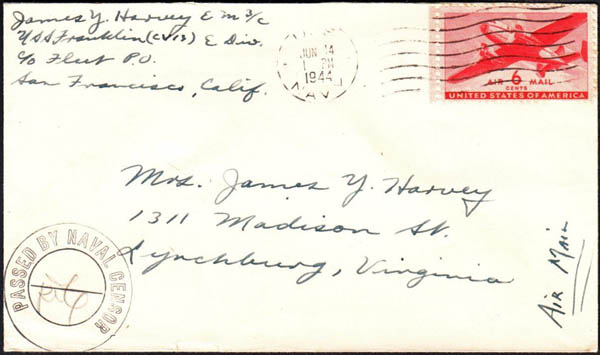 James Y. Harvey E M 3/c
USS Franklin (CV13) E Div.
c/o Fleet P.O.
San Francisco, Calif.
JUN 14
1944
NAVY
AIR 6 MAIL
CENTS
UNITED STATES OF AMERICA
Mrs. James Y. Harvey
1311 Madison St.
Lynchburg, Virginia
Air Mail
PASSED BY NAVAL CENSOR